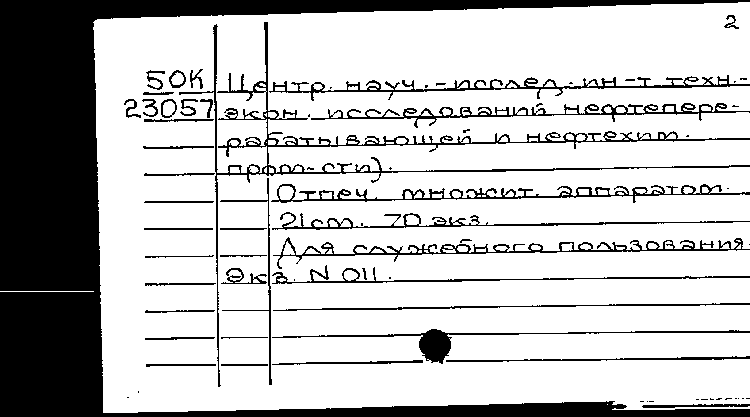 2
50К Центр. науч.-исслед. ин-т техн.-
23057 экон. исследований нефтепере-
рабатывающей и нефтехим.
пром-сти).
Отпеч. множит. аппаратом.
21см. 70 экз.
Для служебного пользования.
Экз. N 011.